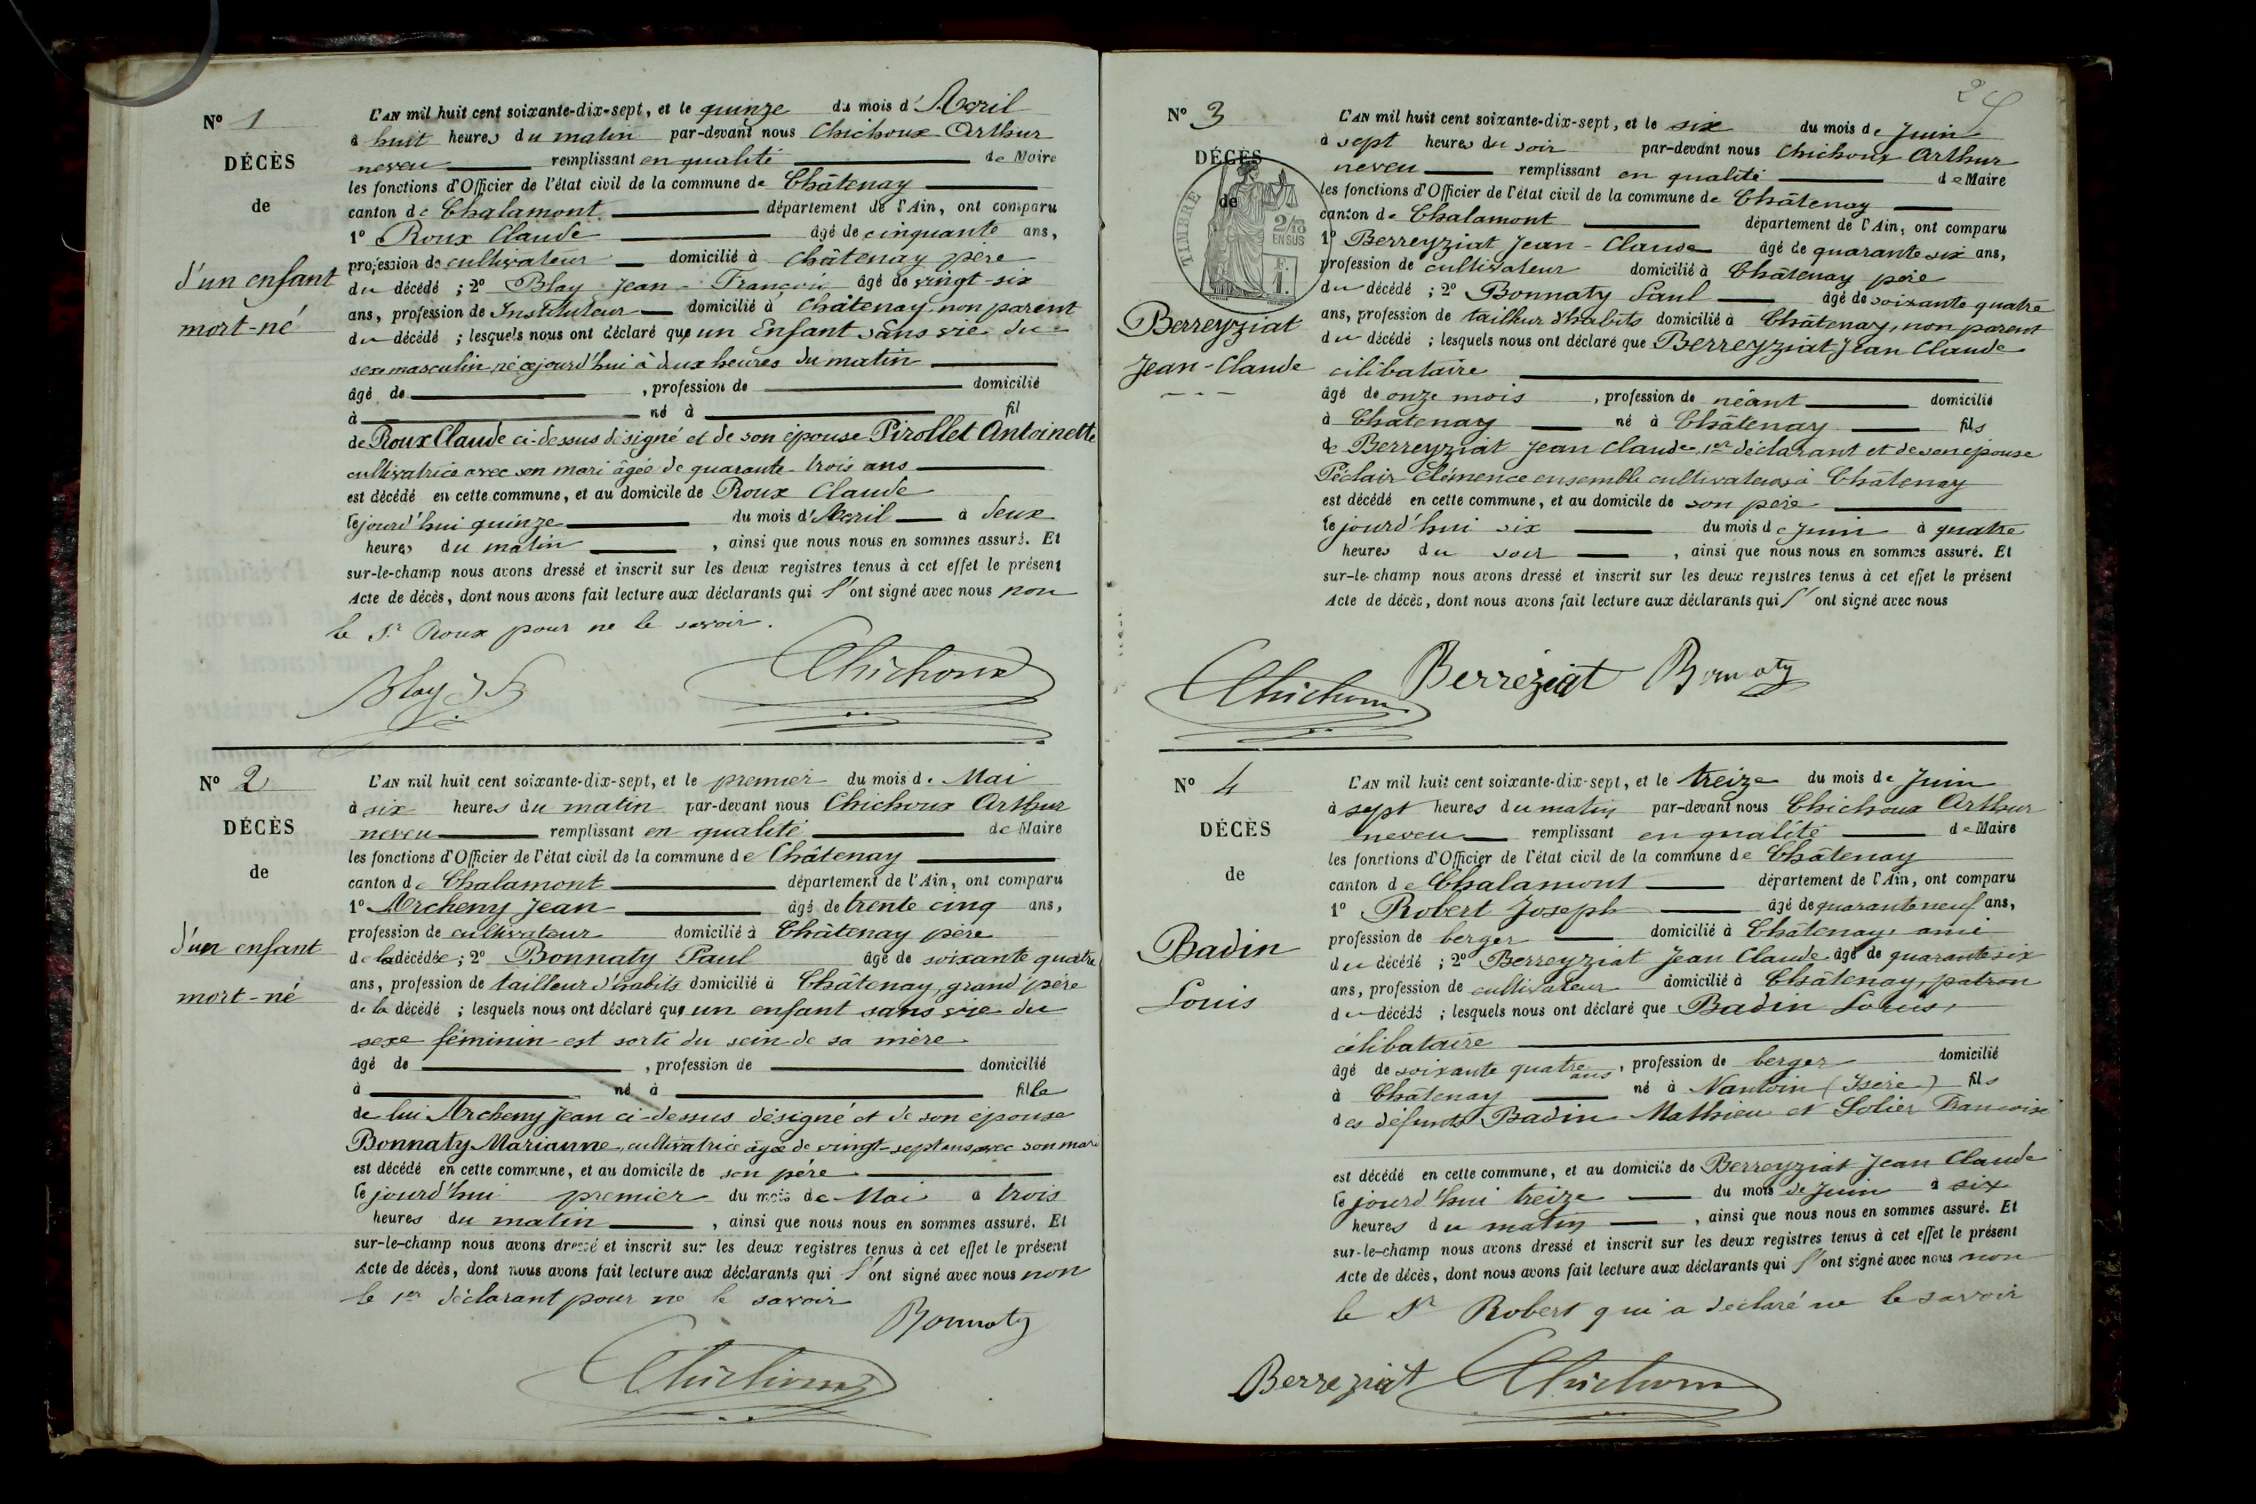 Nº 1
DÉCÈS
de
d'un enfant
mort-né
L'AN mil huit cent soixante-dix-sept, et le quinze du mois d'Avril
à huit heures du matin par-devant nous Chichoux Arthur
neveu remplissant en qualité de Maire
les fonctions d'Officier de l'état civil de la commune de Châtenay
canton de Chalamont département de l'Ain, ont comparu
1º Roux Claude âgé de cinquante ans,
profession de cultivateur domicilié à Châtenay père
du décédé ; 2º Blay Jean-François âgé de vingt-six
ans, profession de Instituteur domicilié à Châtenay, non parent
du décédé ; lesquels nous ont déclaré que un Enfant sans vie du
sexe masculin, né cejourd'hui à deux heures du matin
âgé de , profession de domicilié
à né à fil
de Roux Claude ci-dessus désigné et de son épouse Pirollet Antoinette
cultivatrice avec son mari âgée de quarante-trois ans
est décédé en cette commune, et au domicile de Roux Claude
le jourd'hui quinze du mois d'Avril à deux
heures du matin , ainsi que nous nous en sommes assuré. Et
sur-le-champ nous avons dressé et inscrit sur les deux registres tenus à cet effet le présent
Acte de décès, dont nous avons fait lecture aux déclarants qui l'ont signé avec nous non
le Sr Roux pour ne le savoir.
Blay J F Chichoux
Nº 2
DÉCÈS
de
d'un enfant
mort-né
L'AN mil huit cent soixante-dix-sept, et le premier du mois de Mai
à six heures du matin par-devant nous Chichoux Arthur
neveu remplissant en qualité de Maire
les fonctions d'Officier de l'état civil de la commune de Châtenay
canton de Chalamont département de l'Ain, ont comparu
1º Archeny Jean âgé de trente cinq ans,
profession de cultivateur domicilié à Châtenay père
de la décédée ; 2º Bonnaty Paul âgé de soixante quatre
ans, profession de tailleur d'habits domicilié à Châtenay, grand père
de la décédé ; lesquels nous ont déclaré que un enfant sans vie du
sexe féminin est sorte du sein de sa mère
âgé de , profession de domicilié
à né à fille
de lui Archeny Jean ci-dessus désigné et de son épouse
Bonnaty Marianne, cultivatrice âgée de vingt-sept ans, avec son mari
est décédé en cette commune, et au domicile de son père
le jourd'hui premier du mois de Mai à trois
heures du matin , ainsi que nous nous en sommes assuré. Et
sur-le-champ nous avons dressé et inscrit sur les deux registres tenus à cet effet le présent
Acte de décès, dont nous avons fait lecture aux déclarants qui l'ont signé avec nous non
le 1er déclarant pour ne le savoir
Bonnaty
Chichoux
Nº 3
DÉCÈS
de
TIMBRE
2/10
EN SUS
Berreyziat
Jean-Claude
L'AN mil huit cent soixante-dix-sept, et le six du mois de Juin
à sept heures du soir par-devant nous Chichoux Arthur
neveu remplissant en qualité de Maire
les fonctions d'Officier de l'état civil de la commune de Châtenay
canton de Chalamont département de l'Ain, ont comparu
1º Berreyziat Jean-Claude âgé de quarante six ans,
profession de cultivateur domicilié à Châtenay père
du décédé ; 2º Bonnaty Paul âgé de soixante quatre
ans, profession de tailleur d'habits domicilié à Châtenay, non parent
du décédé ; lesquels nous ont déclaré que Berreyziat Jean Claude
cilibataire
âgé de onze mois , profession de néant domicilié
à Châtenay né à Châtenay fils
de Berreyziat Jean Claude, 1er déclarant et de son épouse
Péclair Clémence ensemble cultivateurs à Châtenay
est décédé en cette commune, et au domicile de son père
le jourd'hui six du mois de Juin à quatre
heures du soir , ainsi que nous nous en sommes assuré. Et
sur-le-champ nous avons dressé et inscrit sur les deux registres tenus à cet effet le présent
Acte de décès, dont nous avons fait lecture aux déclarants qui l'ont signé avec nous
Chichoux Berréziat Bonnaty
Nº 4
DÉCÈS
de
Badin
Louis
L'AN mil huit cent soixante-dix-sept, et le treize du mois de Juin
à sept heures du matin par-devant nous Chichoux Arthur
neveu remplissant en qualité de Maire
les fonctions d'Officier de l'état civil de la commune de Châtenay
canton de Chalamont département de l'Ain, ont comparu
1º Robert Joseph âgé de quarante neuf ans,
profession de berger domicilié à Châtenay, ami
du décédé ; 2º Berreyziat Jean Claude âgé de quarante six
ans, profession de cultivateur domicilié à Châtenay, patron
du décédé ; lesquels nous ont déclaré que Badin Louis,
célibataire
âgé de soixante quatre ans, profession de berger domicilié
à Châtenay né à Nantoin (Isère) fils
des défunts Badin Mathieu et Solier Françoise
est décédé en cette commune, et au domicile de Berreyziat Jean Claude
le jourd'hui treize du mois de Juin à six
heures du matin , ainsi que nous nous en sommes assuré. Et
sur-le-champ nous avons dressé et inscrit sur les deux registres tenus à cet effet le présent
Acte de décès, dont nous avons fait lecture aux déclarants qui l'ont signé avec nous non
le Sr Robert qui a déclaré ne le savoir
Berreziat Chichoux